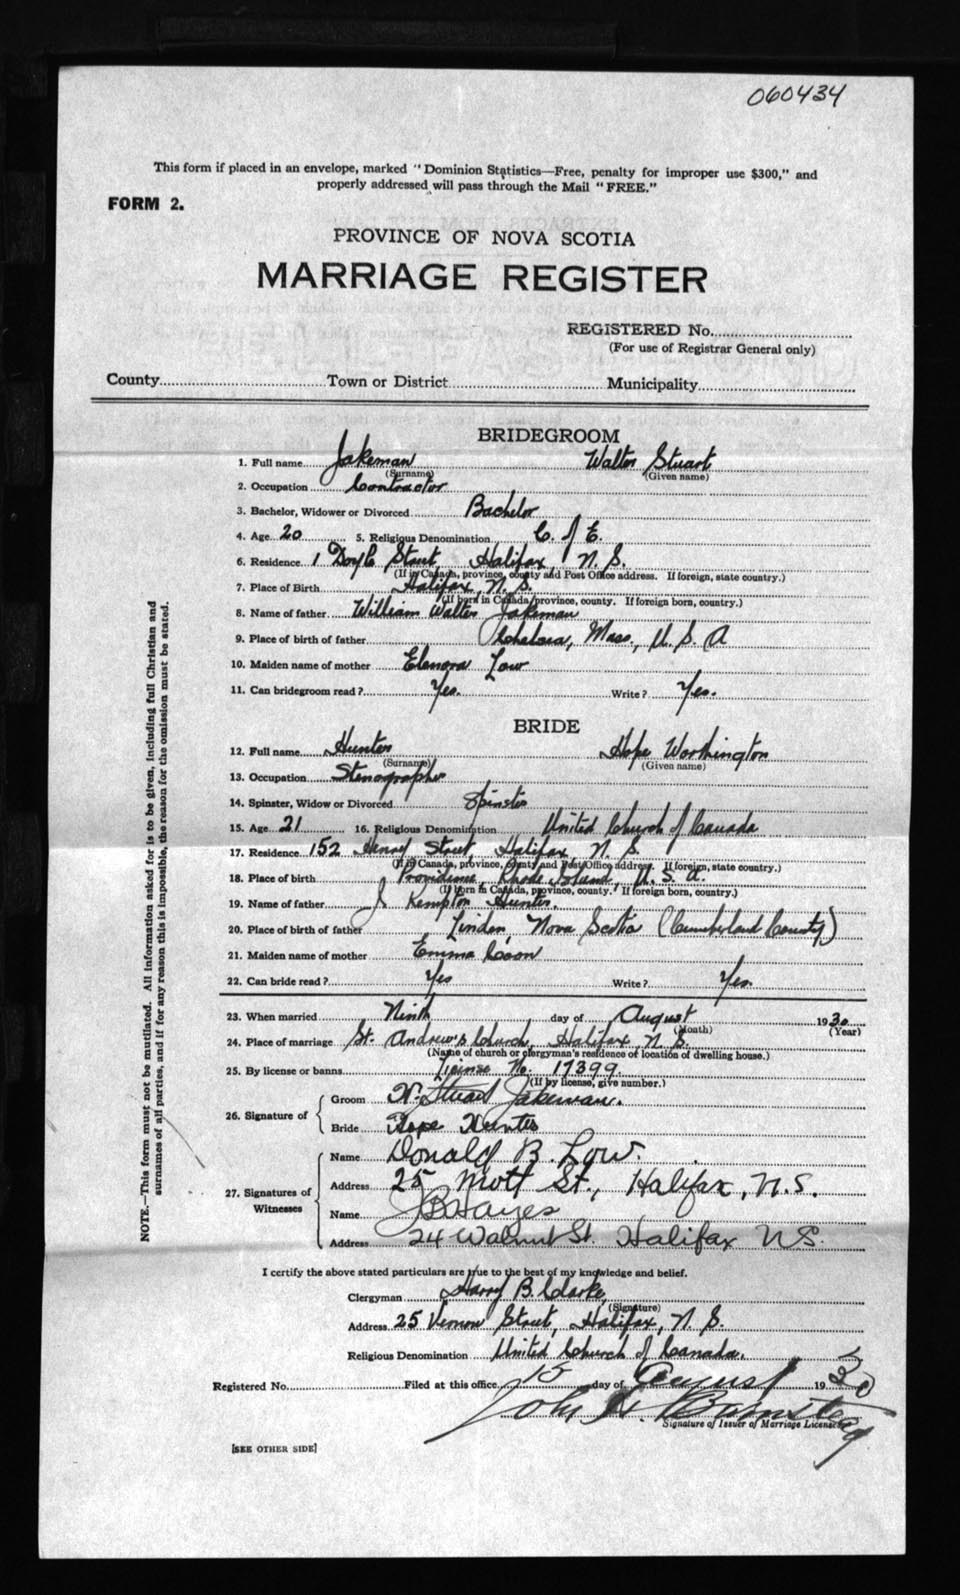 060434
This form if placed in an envelope, marked "Dominion Statistics—Free, penalty for improper use $300," and
properly addressed will pass through the Mail "FREE."
FORM 2.
PROVINCE OF NOVA SCOTIA
MARRIAGE REGISTER
REGISTERED No.
(For use of Registrar General only)
County Town or District Municipality
BRIDEGROOM
1. Full name Jakeman Walter Stuart
(Surname) (Given name)
2. Occupation Contractor
3. Bachelor, Widower or Divorced Bachelor
4. Age 20 5. Religious Denomination C. of E.
6. Residence 1 Doyle Street, Halifax, N. S.
(If in Canada, province, county and Post Office address. If foreign, state country.)
7. Place of Birth Halifax, N. S.
(If born in Canada, province, county. If foreign born, country.)
8. Name of father William Walter Jakeman
9. Place of birth of father Chelsea, Mass., U. S. A
10. Maiden name of mother Elenora Low
11. Can bridegroom read? Yes. Write? Yes.
BRIDE
12. Full name Hunter Hope Worthington
(Surname) (Given name)
13. Occupation Stenographer
14. Spinster, Widow or Divorced Spinster
15. Age 21 16. Religious Denomination United Church of Canada
17. Residence 152 Henry Street, Halifax N. S.
(If in Canada, province, county and Post Office address. If foreign, state country.)
18. Place of birth Providence, Rhode Island, U. S. A.
(If born in Canada, province, county. If foreign born, country.)
19. Name of father J Kempton Hunter.
20. Place of birth of father Linden, Nova Scotia (Cumberland County)
21. Maiden name of mother Emma Coon
22. Can bride read? Yes Write? Yes.
23. When married Ninth day of August 1930
(Month) (Year)
24. Place of marriage St. Andrew's Church, Halifax, N. S.
(Name of church or clergyman's residence or location of dwelling house.)
25. By license or banns License No. 17399
(If by license, give number.)
26. Signature of Groom W. Stuart Jakeman.
Bride Hope Hunter
27. Signatures of Witnesses Name Donald B. Low.
Address 25 Mott St., Halifax, N.S.
Name J B Hayes
Address 24 Walnut St. Halifax NS.
I certify the above stated particulars are true to the best of my knowledge and belief.
Clergyman Harry B. Clarke,
(Signature)
Address 25 Vernon Street, Halifax, N. S.
Religious Denomination United Church of Canada.
Registered No. Filed at this office 15 day of August 1930
John A. Barnstead
Signature of Issuer of Marriage Licenses
[SEE OTHER SIDE]
NOTE.—This form must not be mutilated. All information asked for is to be given, including full Christian and
surnames of all parties, and if for any reason this is impossible, the reason for the omission must be stated.